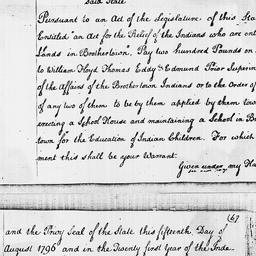 Said State
Pursuant to an Act of the Legislature of this Sta
Entitled "an Act for the Relief of the Indians who are ent
Lands in Brothertown. Pay two hundred Pounds on
to William Floyd Thomas Eddy & Edmund Prior Superin
of the Affairs of the Brothertown Indians or to the Order of
of any two of them to be by them applied by them tow
erecting a School House and maintaining a School in B
town for the Education of Indian Children. For which
ment this shall be your Warrant.
Given under my Ha
(67
and the Privy Seal of the State this fifteenth Day of
August 1796 and in the Twenty first Year of the Inde